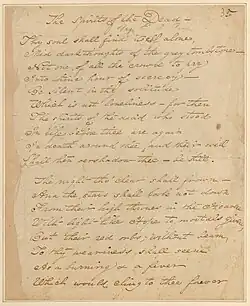 The Spirits of the Dead —
Thy soul shall find itself alone
'Mid dark thoughts of the grey tombstone —
Not one, of all the crowd to pry
Into thine hour of secrecy:
Be silent in that solitude
Which is not loneliness — for then
The spirits of the dead who stood
In life before thee are again
In death around thee, and their will
Shall then overshadow thee — be still.
The night, tho' clear, shall frown —
And the stars shall look not down
From their high thrones in the Heaven
With light like Hope to mortals given
But their red orbs, without beam,
To thy weariness shall seem
As a burning & a fever
Which would cling to thee forever